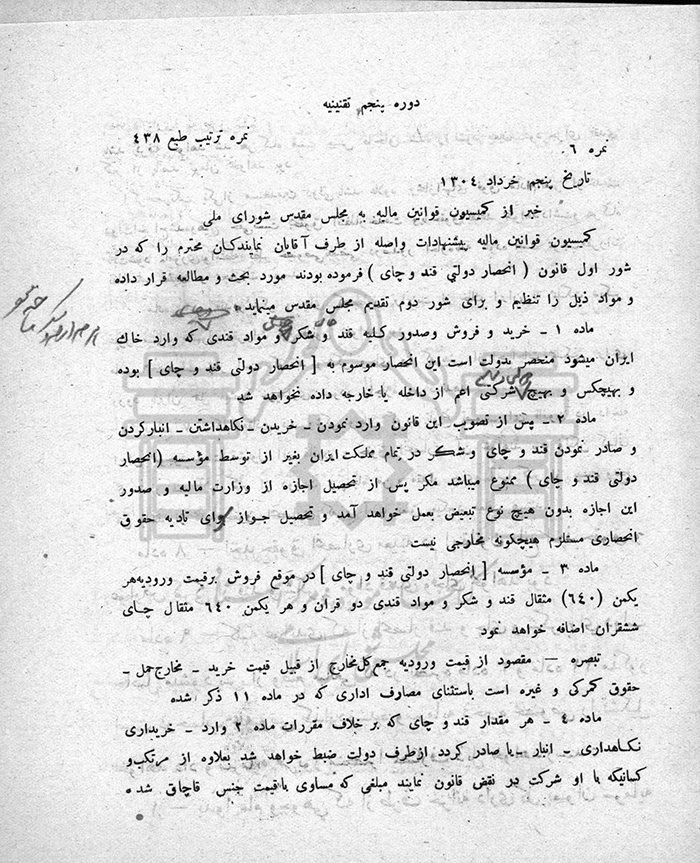 دوره پنجم تقنینیه
نمره ترتیب طبع ۴۳۸
نمره ۶
تاریخ پنجم خرداد ۱۳۰۴
خبر از کمیسیون قوانین مالیه به مجلس مقدس شورای ملی
کمیسیون قوانین مالیه پیشنهادات واصله از طرف آقایان نمایندگان محترم را که در
شور اول قانون ( انحصار دولتی قند و چای ) فرموده بودند مورد بحث و مطالعه قرار داده
و مواد ذیل را تنظیم و برای شور دوم تقدیم مجلس مقدس مینماید
ماده ۱ – خرید و فروش وصدور کلیه قند و شکر و مواد قندی که وارد خاك
ایران میشود منحصر بدولت است این انحصار موسوم به [ انحصار دولتی قند و چای ] بوده
و بهیچکس و بهیچ شرکتی اعم از داخله یا خارجه داده نخواهد شد
ماده ۲ – پس از تصویب این قانون وارد نمودن – خریدن – نگاهداشتن – انبارکردن
و صادر نمودن قند و چای و شکر در تمام مملکت ایران بغیر از توسط مؤسسه (انحصار
دولتی قند و چای ) ممنوع میباشد مگر پس از تحصیل اجازه از وزارت مالیه و صدور
این اجازه بدون هیچ نوع تبعیض بعمل خواهد آمد و تحصیل جواز برای تادیه حقوق
انحصاری مستلزم هیچگونه مخارجی نیست
ماده ۳ – مؤسسه [ انحصار دولتی قند و چای ] در موقع فروش برقیمت ورودیه هر
یکمن (۶۴۰) مثقال قند و شکر و مواد قندی دو قران و هر یکمن ۶۴۰ مثقال چای
ششقران اضافه خواهد نمود
تبصره – مقصود از قیمت ورودیه جمع کل مخارج از قبیل قیمت خرید – مخارج حمل –
حقوق گمرکی و غیره است باستثنای مصارف اداری که در ماده ۱۱ ذکر شده
ماده ۴ – هر مقدار قند و چای که بر خلاف مقررات ماده ۲ وارد – خریداری
نگاهداری – انبار – یا صادر گردد ازطرف دولت ضبط خواهد شد بعلاوه از مرتکب و
کسانیکه با او شرکت در نقض قانون نمایند مبلغی که مساوی باقیمت جنس قاچاق شده